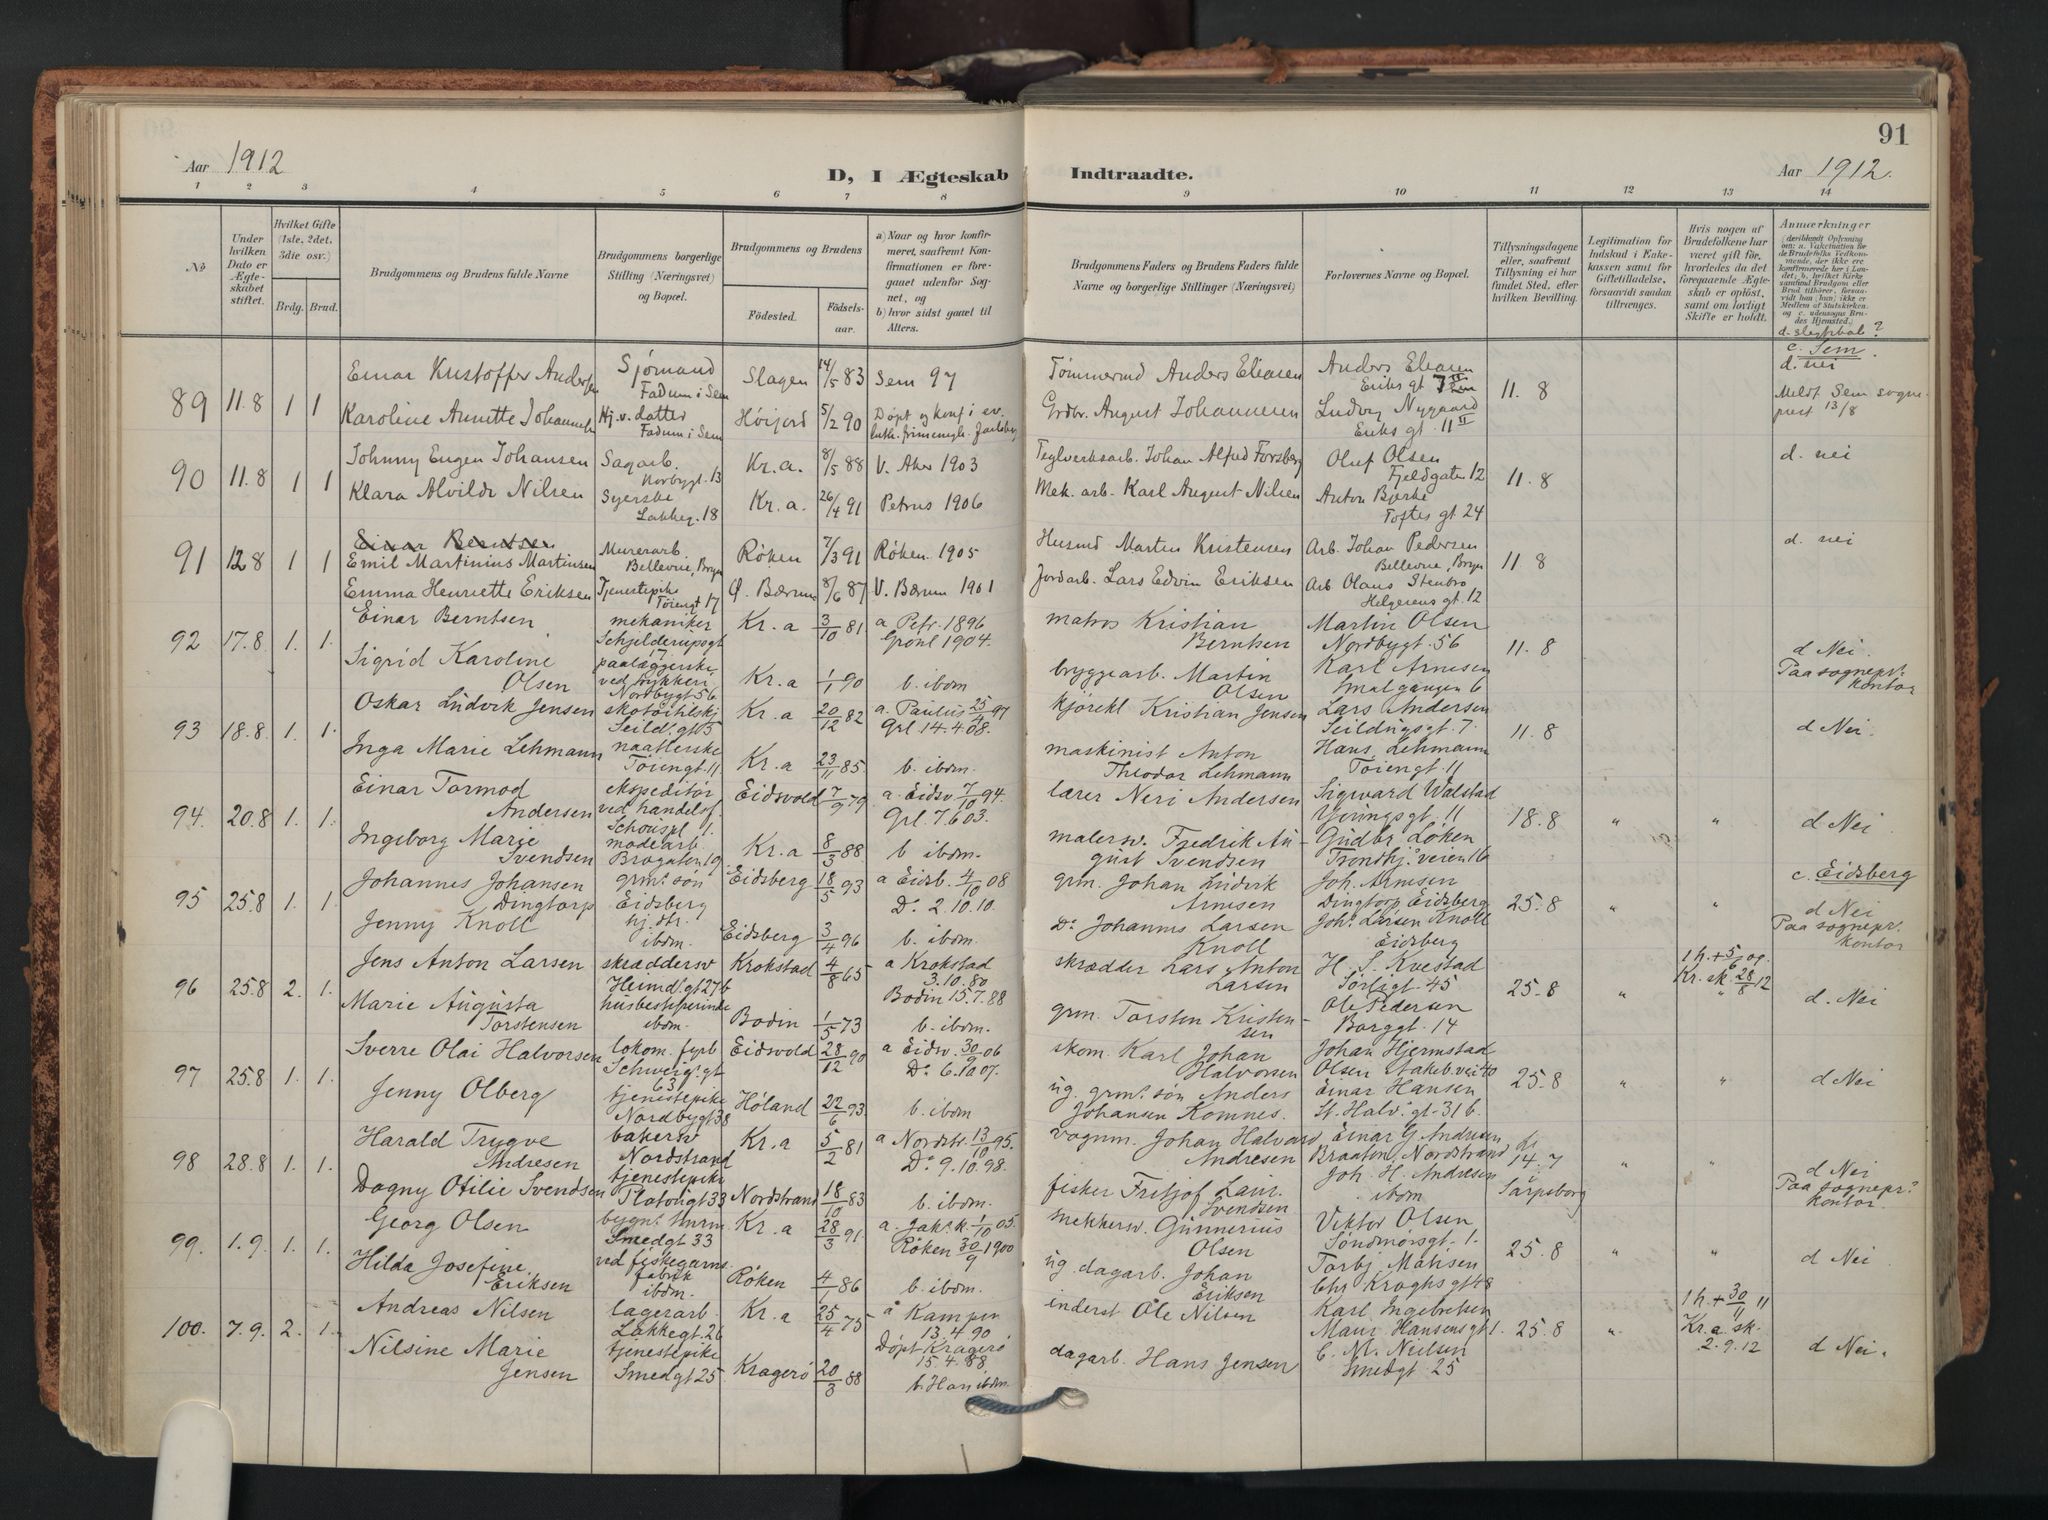 91
Aar 1912
D, I Ægteskab Indtraadte.
Aar 1912.
1 2 3 4 5 6 7 8 9 10 11 12 13 14
No
Under hvilken Dato er Ægteskabet stiftet.
Hvilket Gifte (1ste, 2det, 3die osv.)
Brdg. Brud.
Brudgommens og Brudens fulde Navne
Brudgommens borgerlige Stilling (Næringsvei) og Bopæl.
Brudgommens og Brudens
Fødested.
Fødselsaar.
a) Naar og hvor konfirmeret, saafremt Konfirmationen er foregaaet udenfor Sognet, og
b) hvor sidst gaaet til Alters.
Brudgommens Faders og Brudens Faders fulde Navne og borgerlige Stillinger (Næringsvei)
Forlovernes Navne og Bopæl.
Tillysningsdagene eller, saafremt Tillysning ei har fundet Sted, efter hvilken Bevilling.
Legitimation for Indskud i Enkekassen samt for Giftetilladelse, forsaavidt saadan tiltrænges.
Hvis nogen af Brudefolkene har været gift før, hvorledes da det foregaaende Ægteskab er opløst, samt om lovligt Skifte er holdt.
Anmærkninger
d. slegtskab?
89 11.8 1 1 Einar Kristoffer Andersen Sjømand Fadum i Sem Slagen 14/5 83 Sem 97 Tømmermd Anders Eliasen Anders Eliasen Eriks gt 11. 8 c. Sem. d. nei
Karoline Annette Johannesen Hj.v. datter Fadum i Sem Høijord 5/2 90 Døpt og konf i ev. luth. frimenigh. Jarlsberg Grdbr. August Johannesen Ludvig Nygaard Eriks gt. 11 II Meldt Sem sogneprest 13/8
90 11.8 1 1 Johnny Eugen Johansen Sagarb. Norbygt. 13 Kr.a. 8/5 88 V. Aker 1903 Teglverksarb. Johan Alfred Forsberg Oluf Olsen Fjeldgaten 12 11. 8 d. nei
Klara Alvilde Nilsen Syerske Lakkeg. 18 Kr.a. 26/4 91 Petrus 1906 Mek. arb. Karl August Nilsen Anton Bjerke Toftes gt 24
Einar Berntsen
91 12.8 1 1 Emil Martinius Martinsen Murerarb. Bellevue, Bryn Røken 7/3 91 Røken 1905 Husmd Martin Kristensen Arb. Johan Pedersen Bellevue, Bryn 11. 8 d. nei
Emma Henriette Eriksen Tjenestepike Tøiengt 17 Ø. Bærum 8/6 87 V. Bærum 1901 Jordarb. Lars Edvin Eriksen Arb Olaus Stenbro Helgesens gt. 12
92 17.8 1. 1. Einar Berntsen mekaniker Schjelderupsgt 17 Kr.a 3/10 81 a Petr. 1896 Grønl 1904. matros Kristian Berntsen Martin Olsen Nordbygt. 56 11. 8 d Nei
Sigrid Karoline Olsen paalæggerske ved trykkeri Nordbygt 56 Kr.a 1/1 90 b. ibdm bryggearb. Martin Olsen Karl Arnesen Smalgangen 6 Paa sognepr. kontor
93 18.8. 1. 1. Oskar Ludvik Jensen skotøitilskj Seild. gt 5 Kr.a 20/12 82 a. Paulus 25/4 97 Grl. 14.4.08. kjørekl Kristian Jensen Lars Andersen Seildugsgt. 7. 11. 8 d Nei.
Inga Marie Lehmann naatlerske Tøiengt. 11 Kr.a 23/11 85. b. ibdm. maskinist Anton Theodor Lehmann Hans Lehmann Tøiengt. 11
94. 20.8 1. 1. Einar Tormod Andersen ekspeditør ved handelsf. Schouspl. 1. Eidsvold 7/9 79 a. Eidsv. 7/10 94. Grl. 7.6.03. lærer Neri Andersen Sigward Wolstad 11 18.8 " " d Nei
Ingeborg Marie Svendsen modearb. Brogaten 19 Kr.a 8/3 88 b ibdm. malersv. Fredrik August Svendsen Gudbr. Løken Trondhj. veien 16
95 25.8 1. 1. Johannes Johansen Dingtorp grms søn Eidsberg Eidsberg 18/5 93 a Eidsb. 4/10 08 Do 2.10.10. grm. Johan Ludvik Arnesen Joh. Arnesen Dingtorp Eidsberg 25.8 " " c. Eidsberg d Nei
Jenny Knoll hj. dtr. ibdm. Eidsberg 3/4 96 b. ibdm. Do Johannes Larsen Knoll Johs Larsen Knoll Eidsberg Paa sognepr. kontor
96 25.8 2. 1. Jens Anton Larsen skræddersv Heimd. gt 27 b Krokstad 4/8 65 a Krokstad 3.10.80 Bodin 15.7.88 skrædder Lars Anton Larsen H. S. Kvestad Sørligt. 45 25.8 " 1 h. + 5/6 09. Kr. sk. 28/8 12 d. Nei
Marie Augusta Torstensen husbestyrerinde ibdm. Bodin 1/5 73 b. ibdm. grm. Torsten Kristensen Ole Pedersen Borggt. 14 "
97 25.8 1. 1. Sverre Olai Halvorsen lokom. fyrb Schweigs gt 63 Eidsvold 28/12 90 a Eidsv. 30/9 06 Do 6.10.07. skom. Karl Johan Halvorsen Johan Hjermstad Olsen Jakob. vei 40 25.8 " " d Nei
Jenny Olberg tjenestepike Nordbygt 38 Høland 22/6 93. b. ibdm. ug. grms søn Anders Johansen Komnes. Einar Hansen St. Halv. gt. 31 b.
98 28.8 1. 1. Harald Trygve Andresen bakersv Nordstrand Kr.a 5/2 81 a Nordstr. 13/10 95. Do 9.10.98. vognm. Johan Halvard Andresen Einar G. Andresen Braaten, Nordstrand 14.7 Sarpsborg " " d Nei
Dagny Otilie Svendsen tjenestepike Platougt 33 Nordstrand 18/10 83 b. ibdm. fisker Fritjof Laur. Svendsen Joh. H. Andresen ibdm Paa sognepr. kontor.
99. 1.9. 1. 1. Georg Olsen Smedgt 33 Kr.a 28/3 91. a. Jak. k. 1/10 05. Røken 30/9 1900 snekkersv. Gunnerius Olsen Viktor Olsen Søndmørsgt. 1. 25.8 " " d Nei
Hilda Josefine Eriksen ved fiskegarns fabrik ibdm. Røken 4/1 86 b. ibdm. ug. dagarb. Johan Eriksen Torbj. Mathisen Chr Kroghs gt 48
100. 7.9. 2. 1. Andreas Nilsen lagerarb. Lakkegt. 26 Kr.a 25/4 75 a Kampen 13.4.90 inderst Ole Nilsen Karl Ingebretsen Maur. Hansens gt 1. 25.8 " 1 h. + 30/11 11 Kr.a. sk. 2.9.12 d Nei.
Nilsine Marie Jensen tjenestepike Smedgt 25 Kragerø 20/3 88 Døpt Kragerø 15.4.88. b. Han ibdm. dagarb. Hans Jensen C. M. Nielsen Smedgt. 25